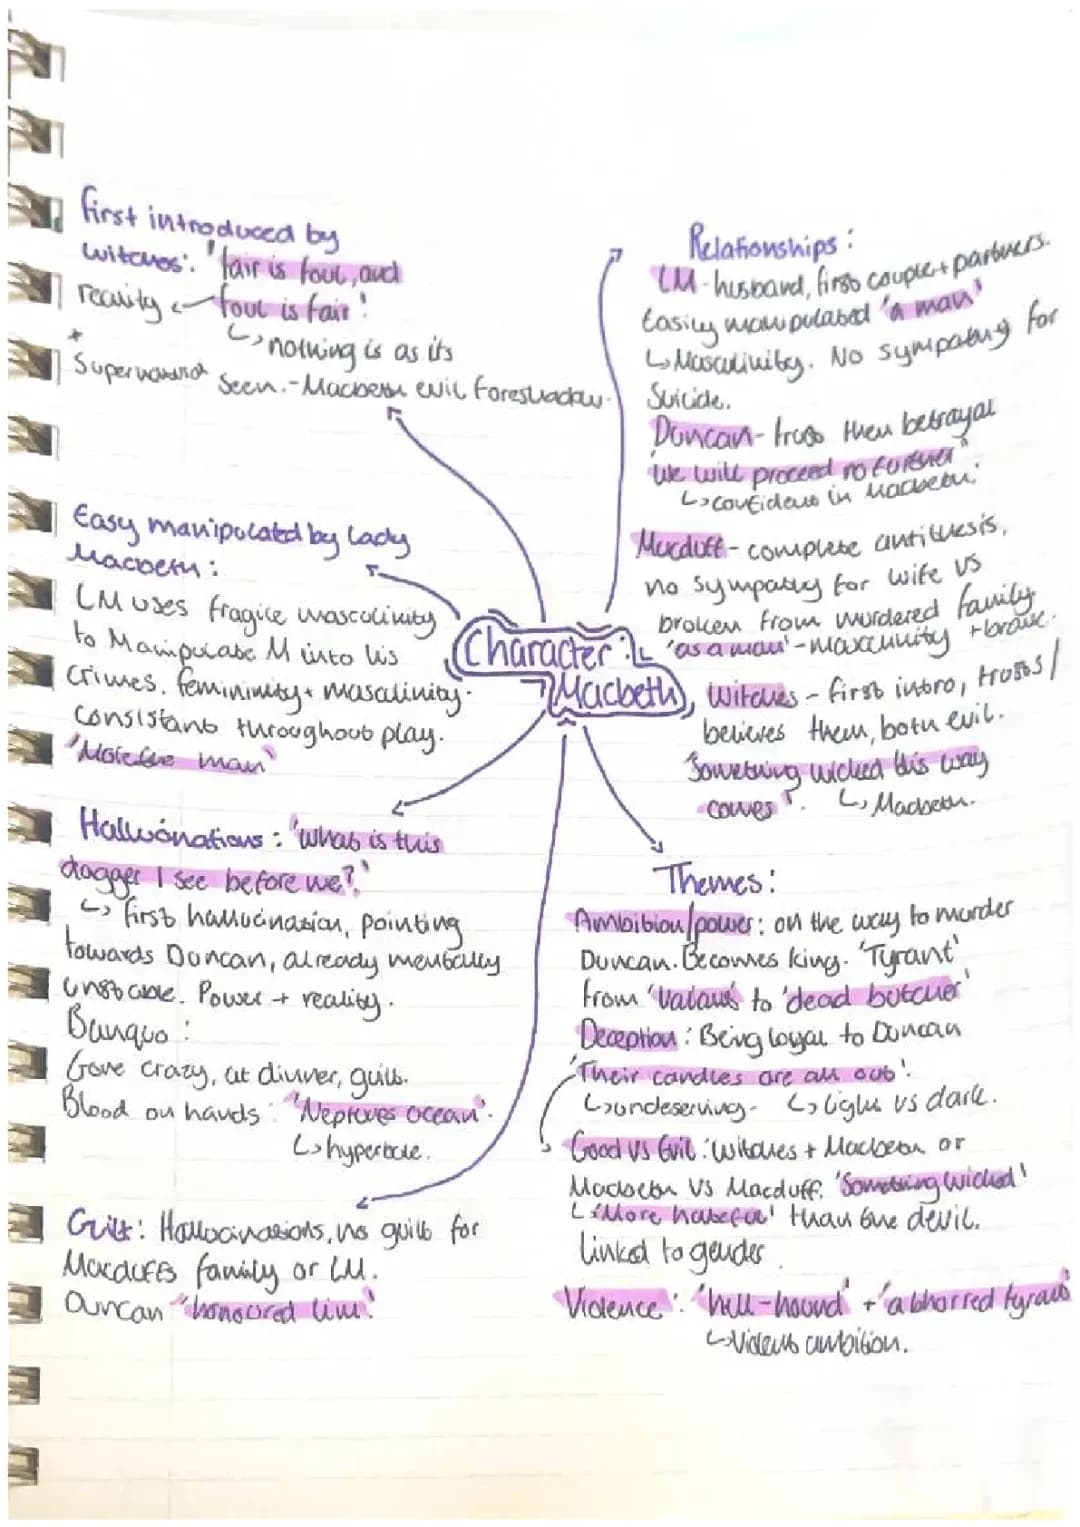 first introduced by
witches: 'fair is foul, and
reality foul is fair'.
↳ nothing is as its
* Supernatural seen. - Macbeth evil foreshadow.
Easy manipulated by Lady
Macbeth:
LM uses fragile masculinity
to Manipulate M into his
crimes. femininity + masculinity.
Consistant throughout play.
man'
Hallucinations: 'what is this
dagger I see before me?'
↳ first hallucination, pointing
towards Duncan, already mentally
unstable. Power + reality.
Banquo:
Gone crazy, at dinner, guilt.
Blood on hands: 'Neptunes ocean'.
↳ hyperbole.
Guilt: Hallucinations, no guilt for
Macduffs family or LM.
Duncan 'honoured him'
Character:
Macbeth
Relationships:
LM - husband, first couple + partners.
Easily manipulated 'a man'
↳ Masculinity. No sympathy for
Suicide.
Duncan - trust then betrayal
'we will proceed no further'
↳ confident in Macbeth.
Macduff - complete antithesis,
no sympathy for wife vs
broken from murdered family
'as a man' - masculinity + brave.
Witches - first intro, trusts/
believes them, both evil.
'Something wicked this way
comes'. ↳ Macbeth.
Themes:
Ambition/power: on the way to murder
Duncan. Becomes king. 'Tyrant'
from 'valiant' to 'dead butcher'
Deception: Being loyal to Duncan
'Their candles are all out'.
↳ undeserving. ↳ light vs dark.
Good vs Evil: witches + Macbeth or
Macbeth vs Macduff. 'Something wicked'
↳ 'More hateful' than the devil.
linked to gender.
Violence: 'hell-hound' + 'abhorred tyrant'
↳ Violent ambition.